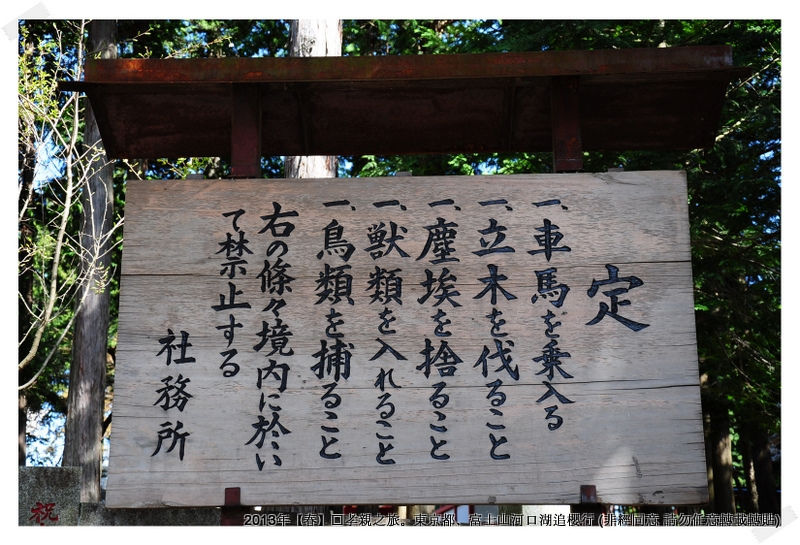 定
一、車馬を乗入る
一、立木を伐ること
一、塵埃を捨ること
一、獣類を入れること
一、鳥類を捕ること
右の條々境内に於い
て禁止する
社務所
祝
2013年【春】回孝親之旅。東京都、富士山河口湖追櫻行 (非經同意 請勿任意轉載轉貼)